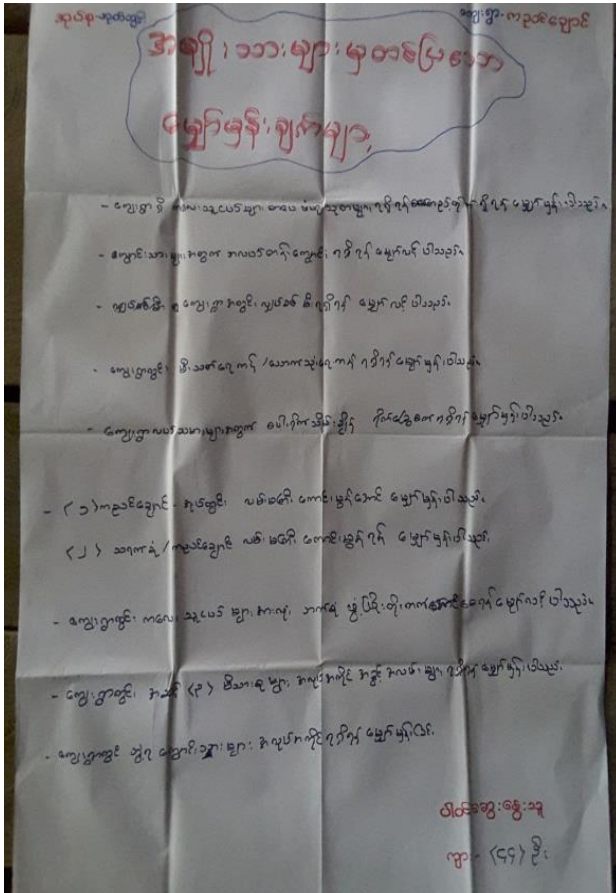 အုပ်စု-အုတ်တွင်း ကျေးရွာ-ကညင်ချောင်
အမျိုးသားများမှတင်ပြသော
မျှော်မှန်းချက်များ
- ကျေးရွာရှိ ကလေးသူငယ်များ ရရှိရန် မျှော်မှန်းပါသည်။
- ကျောင်းသားများအတွက် အလယ်တန်းကျောင်း ရရှိရန် မျှော်လင့်ပါသည်။
- ကျေးရွာအတွင်း လျှပ်စစ်မီးရရှိရန် မျှော်လင့်ပါသည်။
- ကျေးရွာတွင် မီးသတ်ရေကန်/သောက်သုံးရေကန် ရရှိရန်မျှော်မှန်းပါသည်။
- ကျေးရွာလယ်သမားများအတွက် ရရှိရန်မျှော်မှန်းပါသည်။
- (၁) ကညင်ချောင် - အုတ်တွင်း လမ်းမကြီး ကောင်းမွန်အောင် မျှော်မှန်းပါသည်။
(၂) သရက်အုံ/ကညင်ချောင် လမ်းမကြီး ကောင်းမွန်ရန် မျှော်မှန်းပါသည်။
- ကျေးရွာတွင်း ကလေးသူငယ်များအားလုံး ဘက်စုံဖွံ့ဖြိုးတိုးတက် ရန်မျှော်လင့်ပါသည်။
- ကျေးရွာတွင် မိသားစုများ အလုပ်အကိုင်အခွင့်အလမ်းများ ရရှိရန်မျှော်မှန်းပါသည်။
- ကျေးရွာတွင် ဘွဲ့ရကျောင်းသားများ အလုပ်အကိုင်ရရှိရန်မျှော်မှန်းခြင်း
ပါဝင်ဆွေးနွေးသူ
ကျား - (၄၄) ဦး